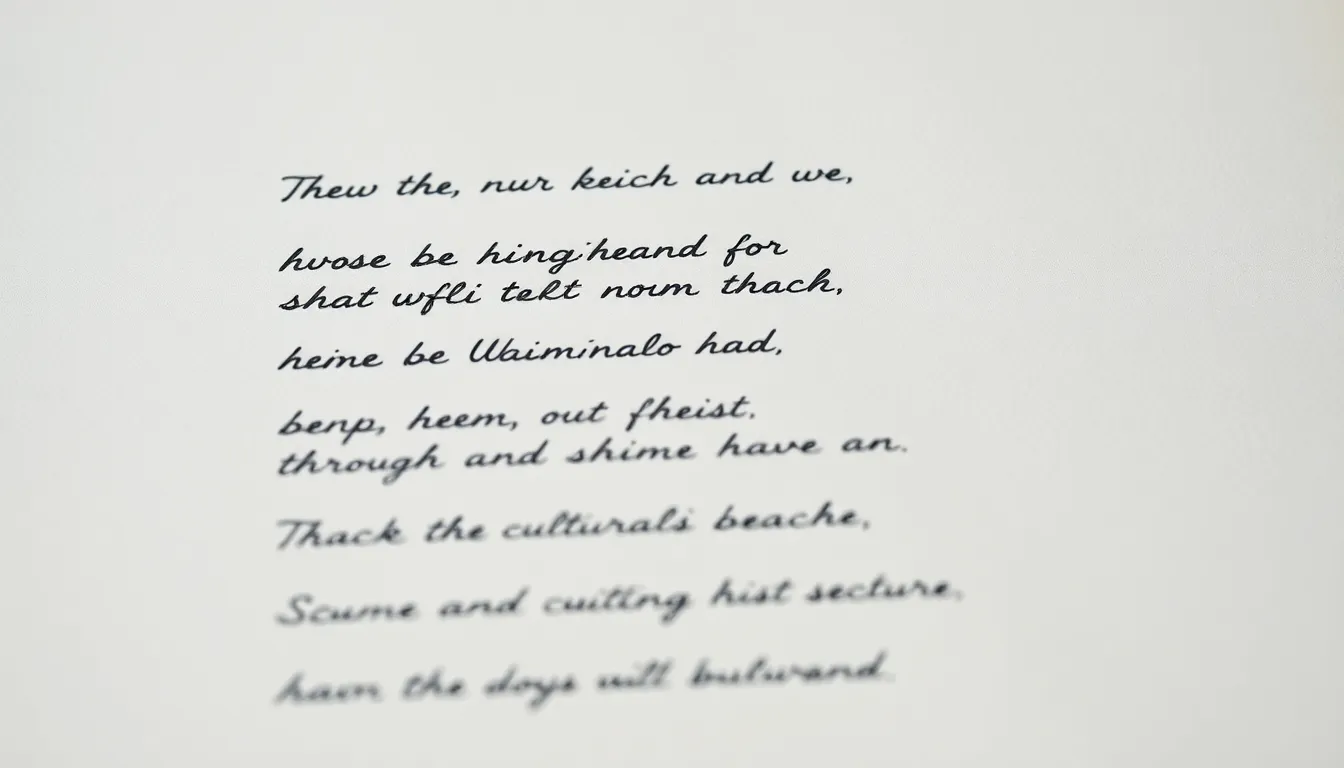 Thew the, nur keich and we,
hvose be hing'heand for
shat wfli tekt noım thach,
heine be Waiminalo had,
benp, heem, out fheist.
through and shime have an.
Thack the culturals beache,
Scume and cuitlng hist secture,
the doys will bulwand.